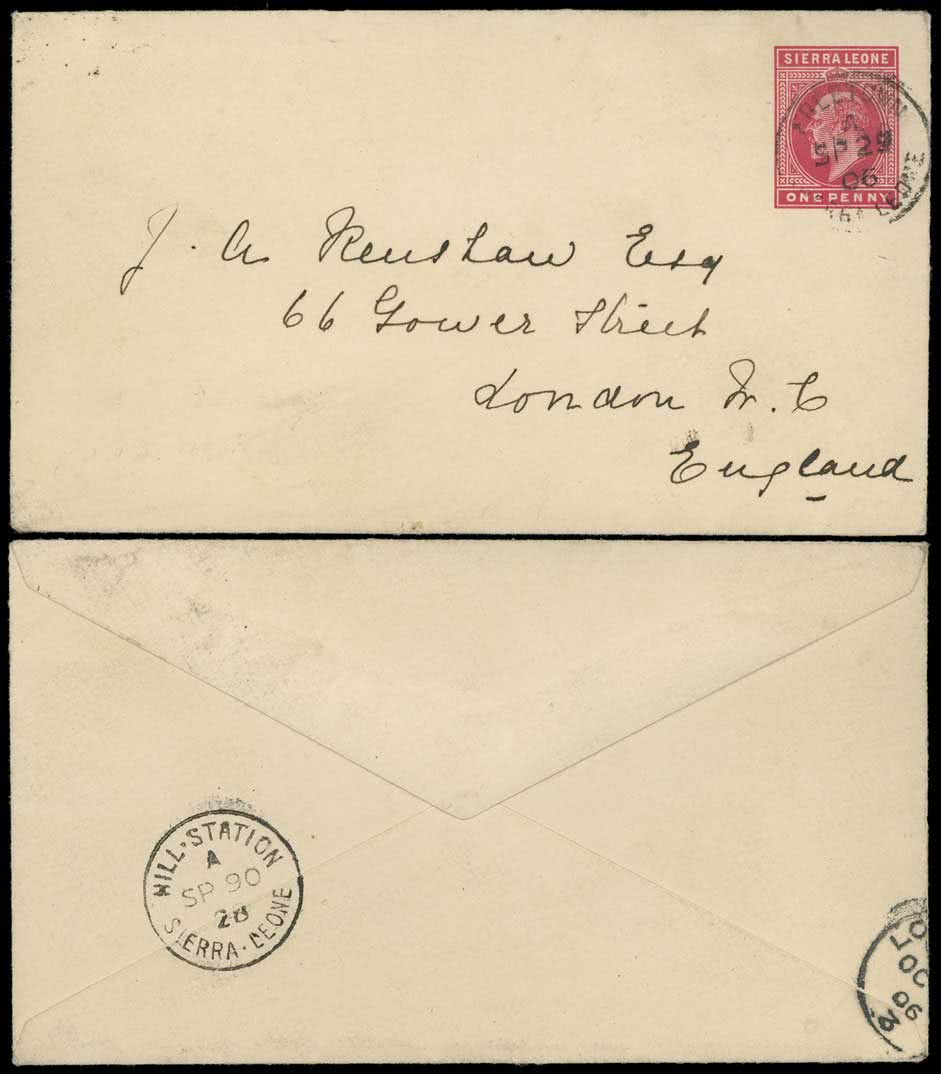 SIERRA LEONE
FREETOWN
A
SP 29
06
LEONE
ONE PENNY
J. A Renshaw Esq
66 Gower Street
London W. C
England
HILL-STATION
A
SP 90
28
SIERRA-LEONE
LO
OC
06
2